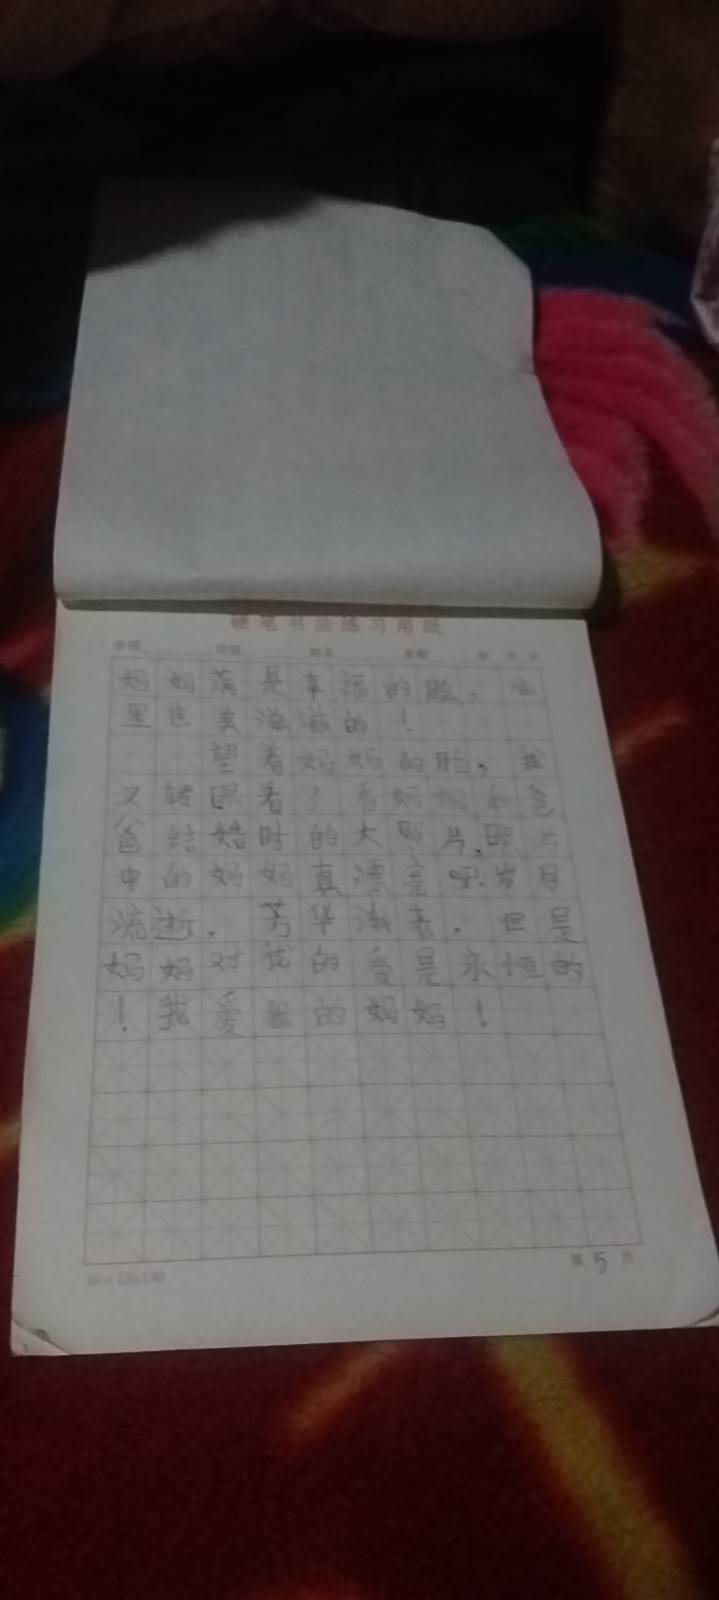 硬笔书法练习用纸
学校 班级 姓名
妈妈满是幸福的脸，心
里也美滋滋的！
望着妈妈的脸，我
又转眼看了看妈妈和爸
爸结婚时的大照片，照片
中的妈妈真漂亮呀岁月
流逝．芳华渐老．但是
妈妈对我的爱是永恒的
！我爱我的妈妈！
第5页